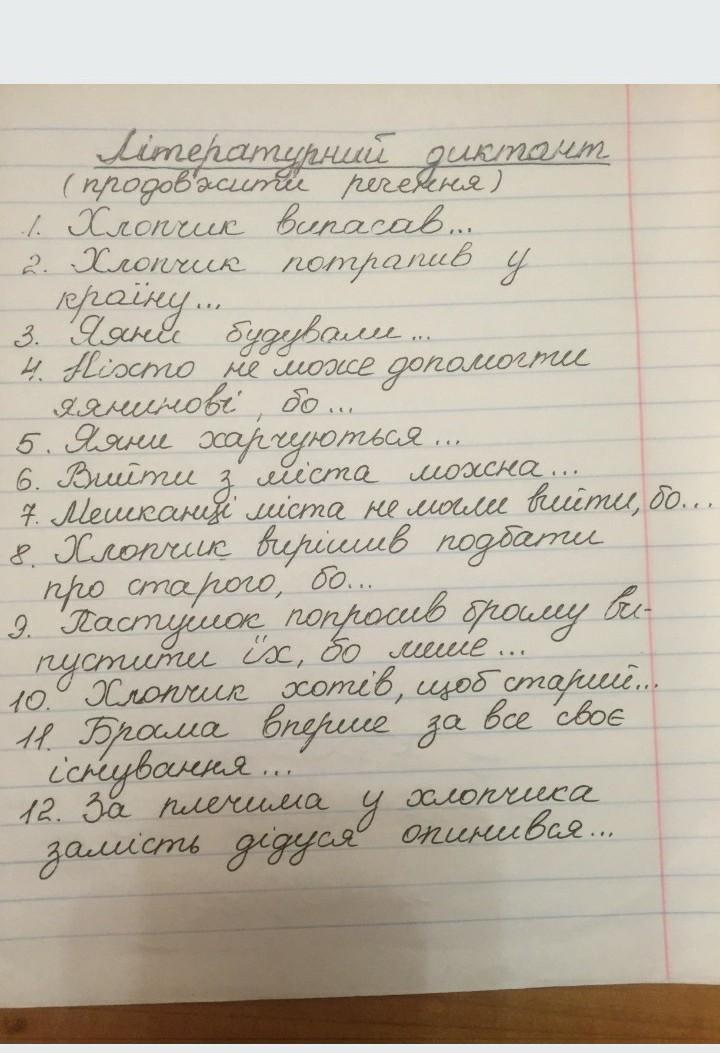 Літературний диктант
(продов'жити речення)
1. Хлопчик випасав...
2. Хлопчик потрапив у
країну...
3. Яяни будували...
4. Ніхто не може допомогти
яянинові, бо...
5. Яяни харчуються...
6. Вийти з міста можна...
7. Мешканці міста не могли вийти, бо...
8. Хлопчик вирішив подбати
про старого, бо...
9. Пастушок попросив браму ви-
пустити їх, бо лише...
10. Хлопчик хотів, щоб старий...
11. Брама вперше за все своє
існування...
12. За плечима у хлопчика
замість дідуся опинився...